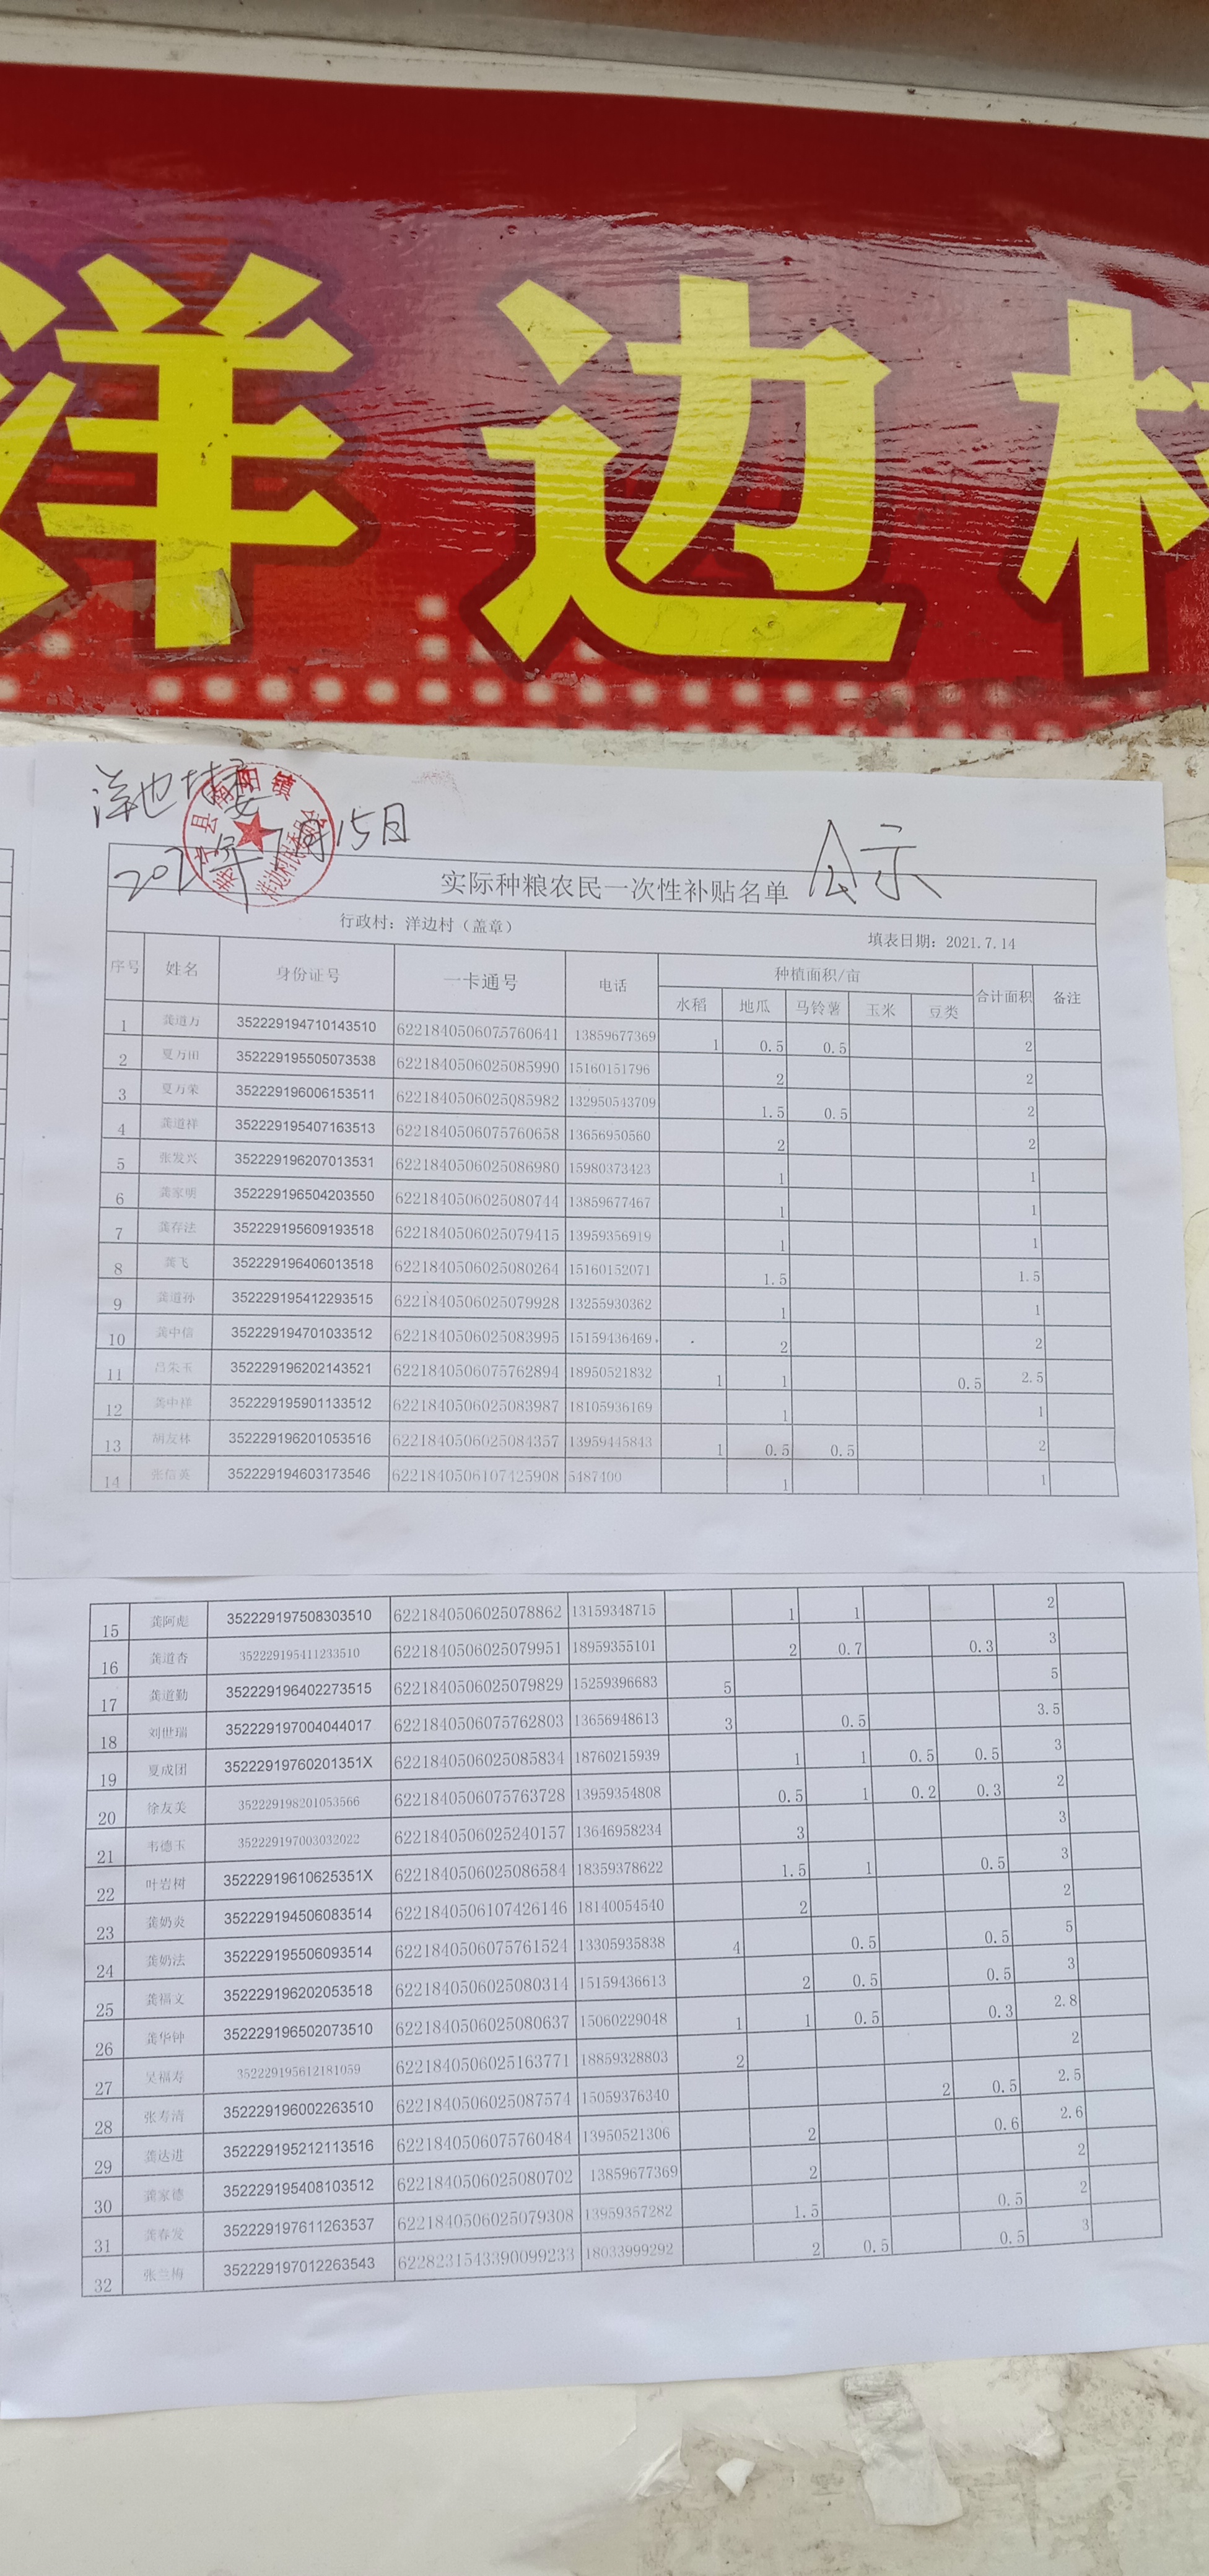 洋边村
洋边村委
2021年7月15日
公示
寿宁县南阳镇
洋边村民委员会
实际种粮农民一次性补贴名单
行政村：洋边村（盖章） 填表日期：2021.7.14
序号 姓名 身份证号 一卡通号 电话 种植面积/亩 合计面积 备注
水稻 地瓜 马铃薯 玉米 豆类
1 龚道万 352229194710143510 6221840506075760641 13859677369 1 0.5 0.5 2
2 夏万田 352229195505073538 6221840506025085990 15160151796 2 2
3 夏万荣 352229196006153511 6221840506025085982 132950543709 1.5 0.5 2
4 龚道祥 352229195407163513 6221840506075760658 13656950560 2 2
5 张发兴 352229196207013531 6221840506025086980 15980373423 1 1
6 龚家明 352229196504203550 6221840506025080744 13859677467 1 1
7 龚存法 352229195609193518 6221840506025079415 13959356919 1 1
8 龚飞 352229196406013518 6221840506025080264 15160152071 1.5 1.5
9 龚道孙 352229195412293515 6221840506025079928 13255930362 1 1
10 龚中信 352229194701033512 6221840506025083995 15159436469 2 2
11 吕朱玉 352229196202143521 6221840506075762894 18950521832 1 1 0.5 2.5
12 龚中祥 352229195901133512 6221840506025083987 18105936169 1 1
13 胡友林 352229196201053516 6221840506025084357 13959445843 1 0.5 0.5 2
14 张信英 352229194603173546 6221840506107425908 5487400 1 1
15 龚阿彪 352229197508303510 6221840506025078862 13159348715 1 1 2
16 龚道杏 352229195411233510 6221840506025079951 18959355101 2 0.7 0.3 3
17 龚道勤 352229196402273515 6221840506025079829 15259396683 5 5
18 刘世瑞 352229197004044017 6221840506075762803 13656948613 3 0.5 3.5
19 夏成团 35222919760201351X 6221840506025085834 18760215939 1 1 0.5 0.5 3
20 徐友美 352229198201053566 6221840506075763728 13959354808 0.5 1 0.2 0.3 2
21 韦德玉 352229197003032022 6221840506025240157 13646958234 3 3
22 叶岩树 35222919610625351X 6221840506025086584 18359378622 1.5 1 0.5 3
23 龚奶炎 352229194506083514 6221840506107426146 18140054540 2 2
24 龚奶法 352229195506093514 6221840506075761524 13305935838 4 0.5 0.5 5
25 龚福文 352229196202053518 6221840506025080314 15159436613 2 0.5 0.5 3
26 龚华钟 352229196502073510 6221840506025080637 15060229048 1 1 0.5 0.3 2.8
27 吴福寿 352229195612181059 6221840506025163771 18859328803 2 2
28 张寿清 352229196002263510 6221840506025087574 15059376340 2 0.5 2.5
29 龚达进 352229195212113516 6221840506075760484 13950521306 2 0.6 2.6
30 龚家德 352229195408103512 6221840506025080702 13859677369 2 2
31 龚春发 352229197611263537 6221840506025079308 13959357282 1.5 0.5 2
32 张兰梅 352229197012263543 6228231543390099233 18033999292 2 0.5 0.5 3